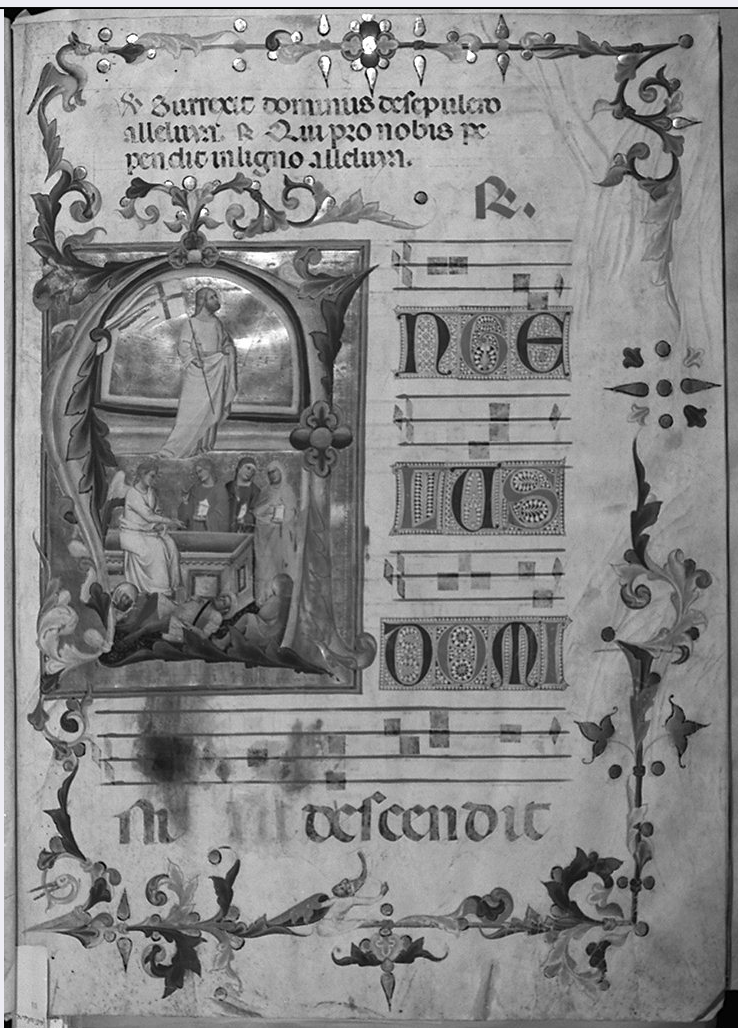 ℣ Surrexit dominus de sepulcro
alleluya. ℟ Qui pro nobis pe
pendit in ligno alleluya.
℟.
ANGE
LUS
DOMI
descendit